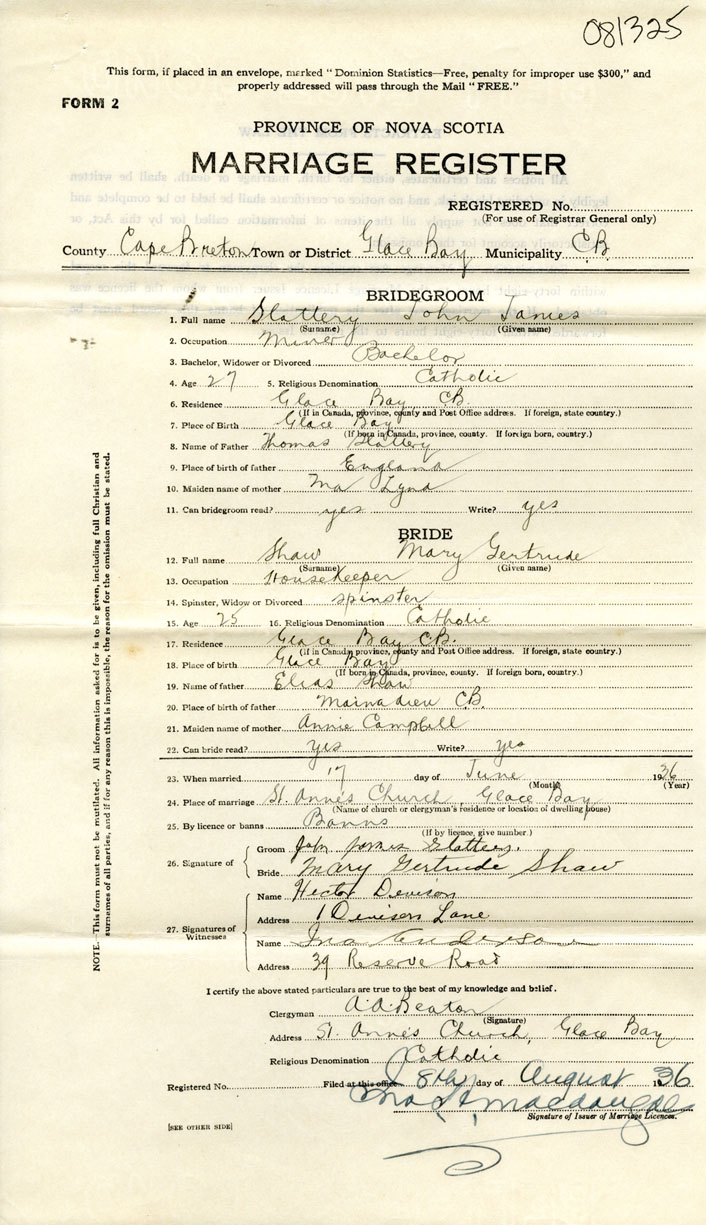 081325
This form, if placed in an envelope, marked "Dominion Statistics—Free, penalty for improper use $300," and
properly addressed will pass through the Mail "FREE."
FORM 2
PROVINCE OF NOVA SCOTIA
MARRIAGE REGISTER
REGISTERED No.
(For use of Registrar General only)
County Cape Breton Town or District Glace Bay Municipality C.B.
BRIDEGROOM
1. Full name Slattery John James
(Surname) (Given name)
2. Occupation Miner
3. Bachelor, Widower or Divorced Bachelor
4. Age 27 5. Religious Denomination Catholic
6. Residence Glace Bay C.B.
(If in Canada, province, county and Post Office address. If foreign, state country.)
7. Place of Birth Glace Bay
(If born in Canada, province, county. If foreign born, country.)
8. Name of Father Thomas Slattery
9. Place of birth of father England
10. Maiden name of mother Ma Lynd
11. Can bridegroom read? yes Write? yes
BRIDE
12. Full name Shaw Mary Gertrude
(Surname) (Given name)
13. Occupation Housekeeper
14. Spinster, Widow or Divorced spinster
15. Age 25 16. Religious Denomination Catholic
17. Residence Glace Bay C.B.
(If in Canada, province, county and Post Office address. If foreign, state country.)
18. Place of birth Glace Bay
(If born in Canada, province, county. If foreign born, country.)
19. Name of father Elias Shaw
20. Place of birth of father Mainadieu C.B.
21. Maiden name of mother Annie Campbell
22. Can bride read? yes Write? yes
23. When married 17 day of June 1936
(Month) (Year)
24. Place of marriage St. Anne's Church, Glace Bay
(Name of church or clergyman's residence or location of dwelling house)
25. By licence or banns Banns
(If by licence, give number.)
26. Signature of
Groom John James Slattery.
Bride Mary Gertrude Shaw
27. Signatures of Witnesses
Name Hector Devison
Address 1 Devison Lane
Name Ina
Address 39 Reserve Road
I certify the above stated particulars are true to the best of my knowledge and belief.
Clergyman A.A. Beaton
(Signature)
Address St. Anne's Church, Glace Bay
Religious Denomination Catholic
Registered No. Filed at this office 8th day of August 1936
Macdougall
Signature of Issuer of Marriage Licences.
[SEE OTHER SIDE]
NOTE.—This form must not be mutilated. All information asked for is to be given, including full Christian and
surnames of all parties, and if for any reason this is impossible, the reason for the omission must be stated.